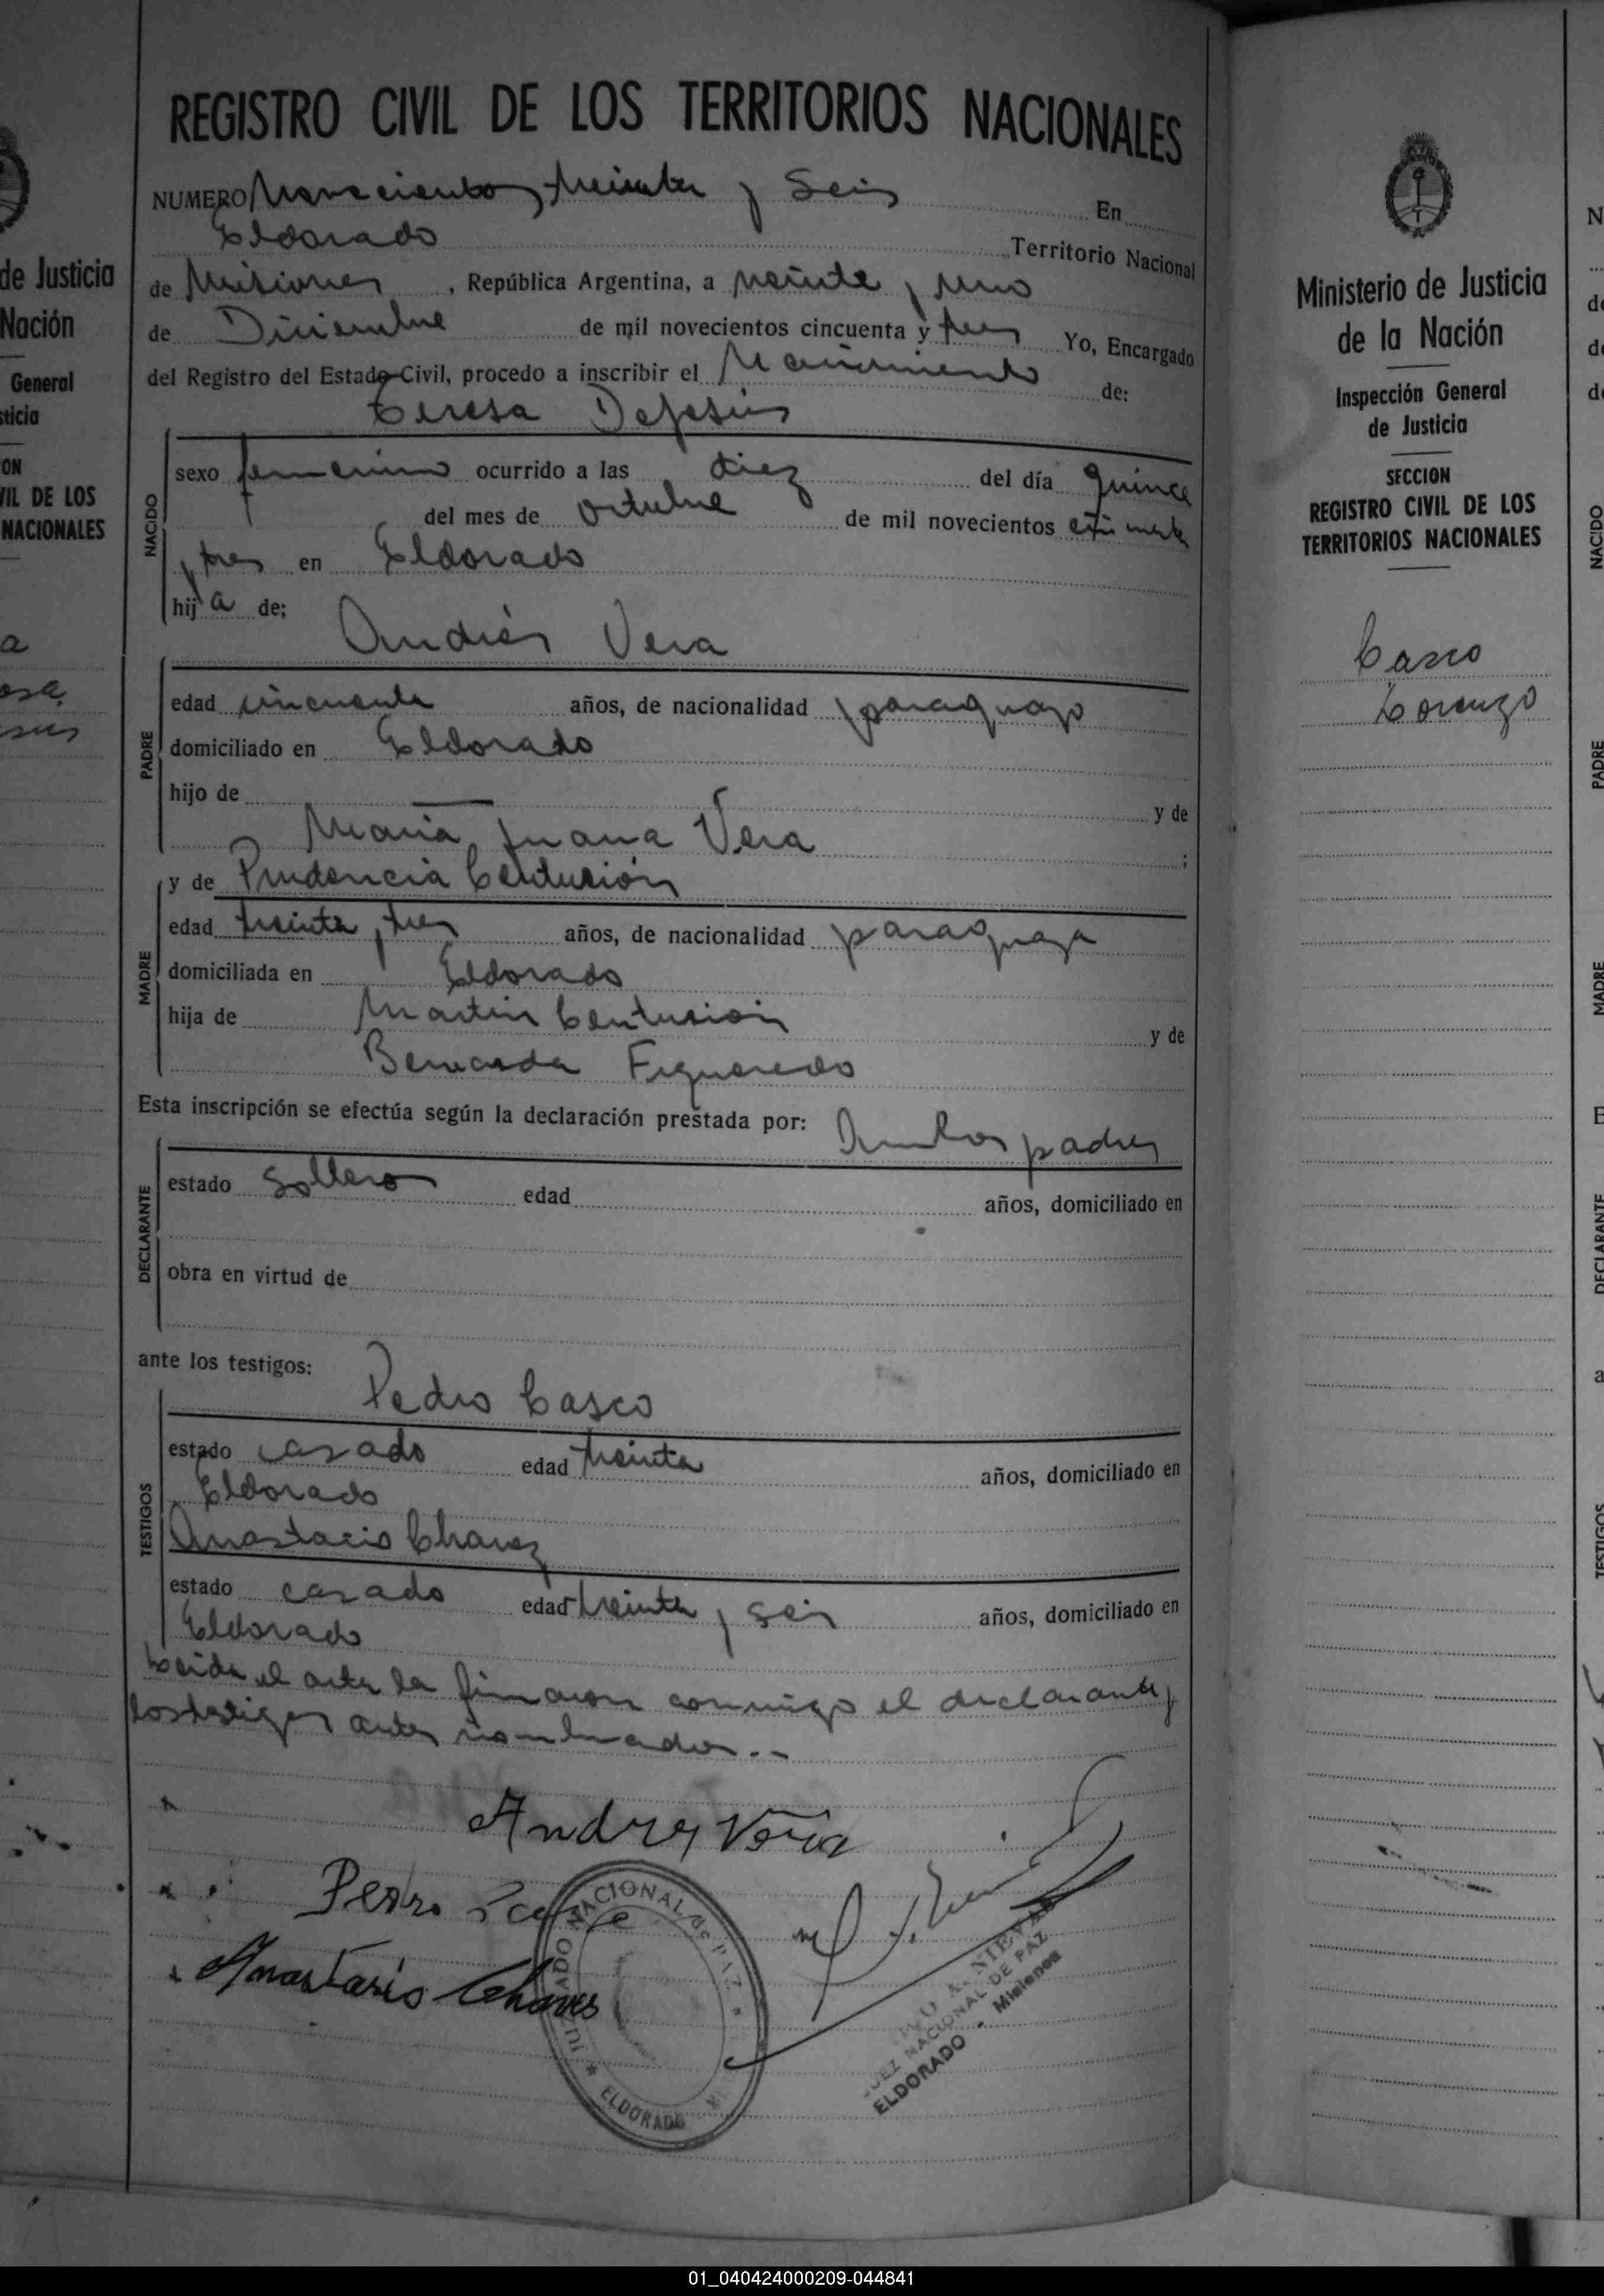 REGISTRO CIVIL DE LOS TERRITORIOS NACIONALES
NUMERO Novecientos treinta y Seis En
Eldorado Territorio Nacional
de Misiones, República Argentina, a veinte y uno
de Diciembre de mil novecientos cincuenta y tres Yo, Encargado
del Registro del Estado Civil, procedo a inscribir el Nacimiento de:
Teresa Dejesús
NACIDO
sexo femenino ocurrido a las diez del día quince
del mes de octubre de mil novecientos cincuenta
y tres en Eldorado
hija de;
Andrés Vera
PADRE
edad cincuenta años, de nacionalidad paraguayo
domiciliado en Eldorado
hijo de — y de
María Juana Vera ;
y de Prudencia Centurión
MADRE
edad treinta y tres años, de nacionalidad paraguaya
domiciliada en Eldorado
hija de Martin Centurión y de
Bernarda Figueredo
Esta inscripción se efectúa según la declaración prestada por: Ambos padres
DECLARANTE
estado soltero edad años, domiciliado en
obra en virtud de
ante los testigos:
Pedro Casco
TESTIGOS
estado casado edad treinta años, domiciliado en
Eldorado
Anastacio Chavez
estado casado edad treinta y seis años, domiciliado en
Eldorado
Leida el acta la firmaron conmigo el declarante y
los testigos antes nombrados.--
Andres Vera
Pedro
Anastasio Chaves
JUZGADO NACIONAL de PAZ
* ELDORADO
A. NIEVAS
JUEZ NACIONAL DE PAZ
ELDORADO - Misiones
de Justicia
Nación
General
sticia
ON
VIL DE LOS
NACIONALES
Ministerio de Justicia
de la Nación
Inspección General
de Justicia
SECCION
REGISTRO CIVIL DE LOS
TERRITORIOS NACIONALES
Casco
Lorenzo
N
de
de
de
NACIDO
PADRE
MADRE
E
DECLARANTE
a
TESTIGOS
01_040424000209-044841